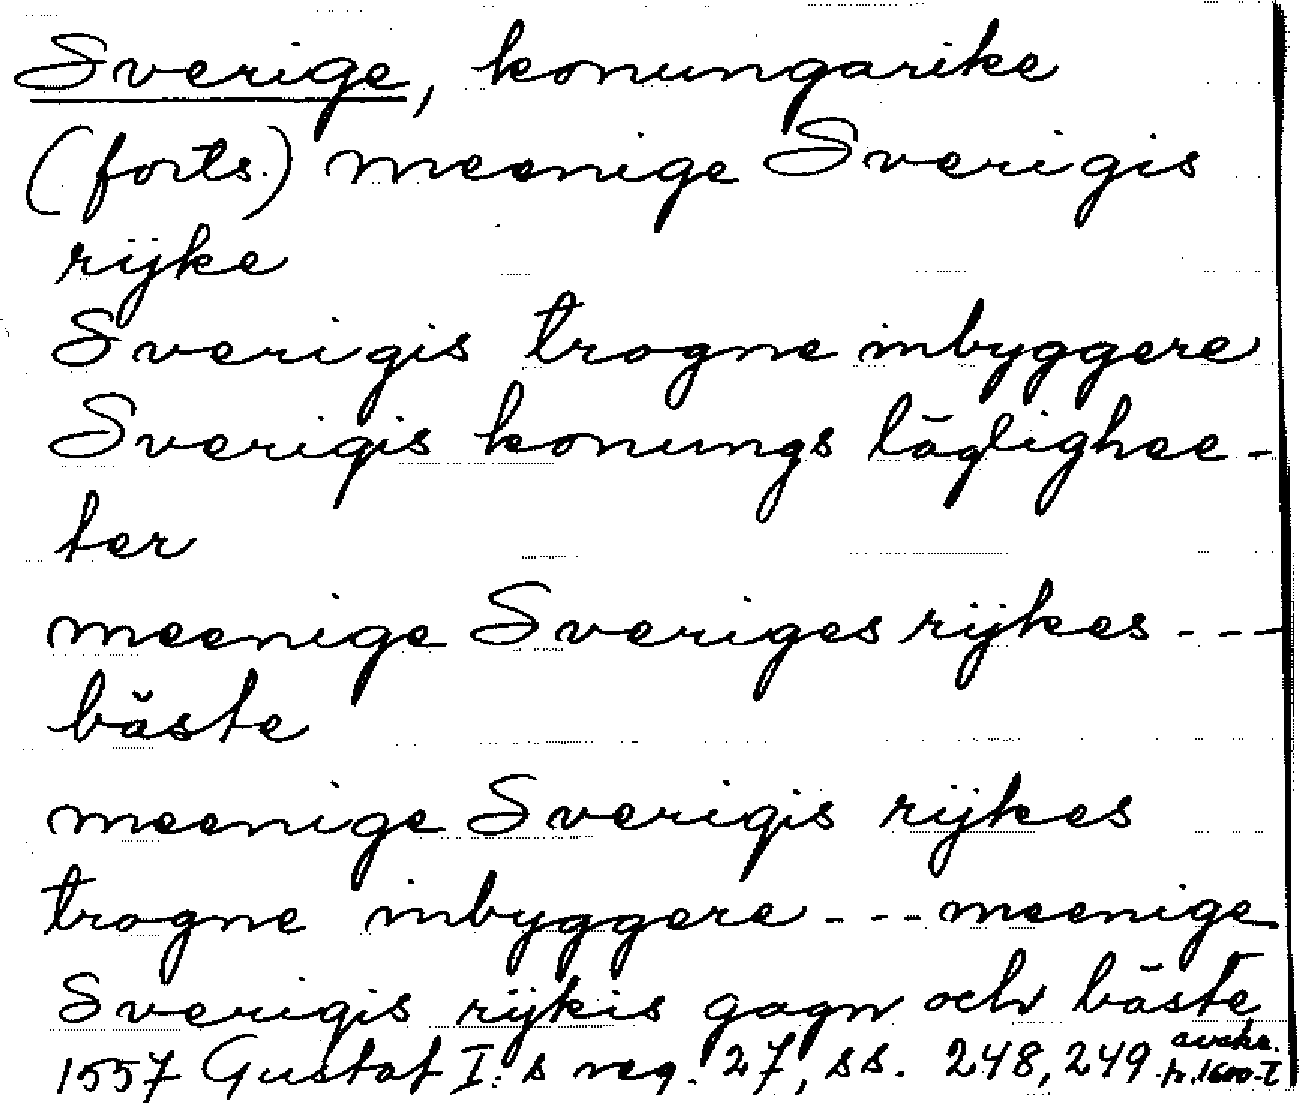 Sverige, konungarike
(forts.) meenige Sverigis
rijke
Sverigis trogne inbyggere
Sverigis konungs läglighee-
ter
meenige Sveriges rijkes ---
bäste
meenige Sverigis rijkes
trogne inbyggere --- meenige
Sverigis rijkis gagn och bäste
1557 Gustaf I:s reg. 27, ss. 248, 249 avskr.